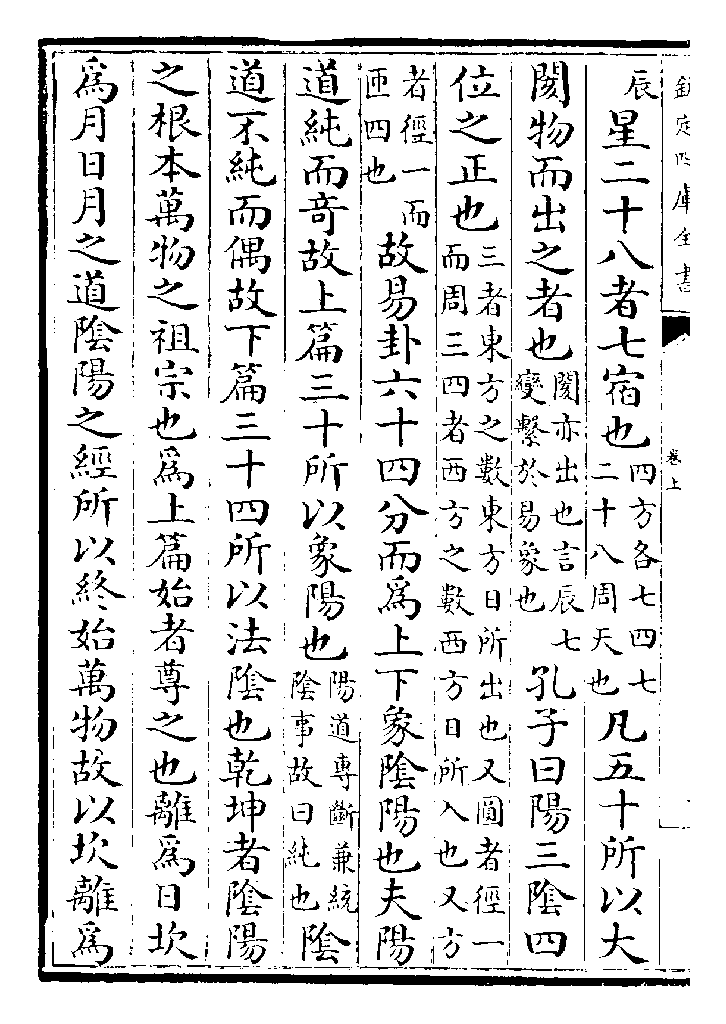 欽定四庫全書
卷上
辰星二十八者七宿也四方各七四七二十八周天也凡五十所以大
閡物而出之者也閡亦出也言辰七變繫於易象也孔子曰陽三陰四
位之正也三者東方之數東方日所出也又圓者徑一而周三四者西方之數西方日所入也又方
者徑一而匝四也故易卦六十四分而爲上下象陰陽也夫陽
道純而奇故上篇三十所以象陽也陽道專斷兼統陰事故曰純也陰
道不純而偶故下篇三十四所以法陰也乾坤者陰陽
之根本萬物之祖宗也爲上篇始者尊之也離爲日坎
爲月日月之道陰陽之經所以終始萬物故以坎離爲